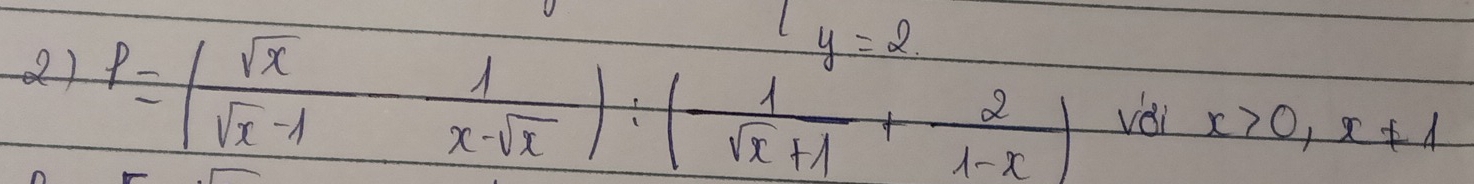 y = 2.
2) P = (√x / (√x - 1) - 1 / (x - √x)) : (1 / (√x + 1) + 2 / (1 - x)) với x > 0, x ≠ 1